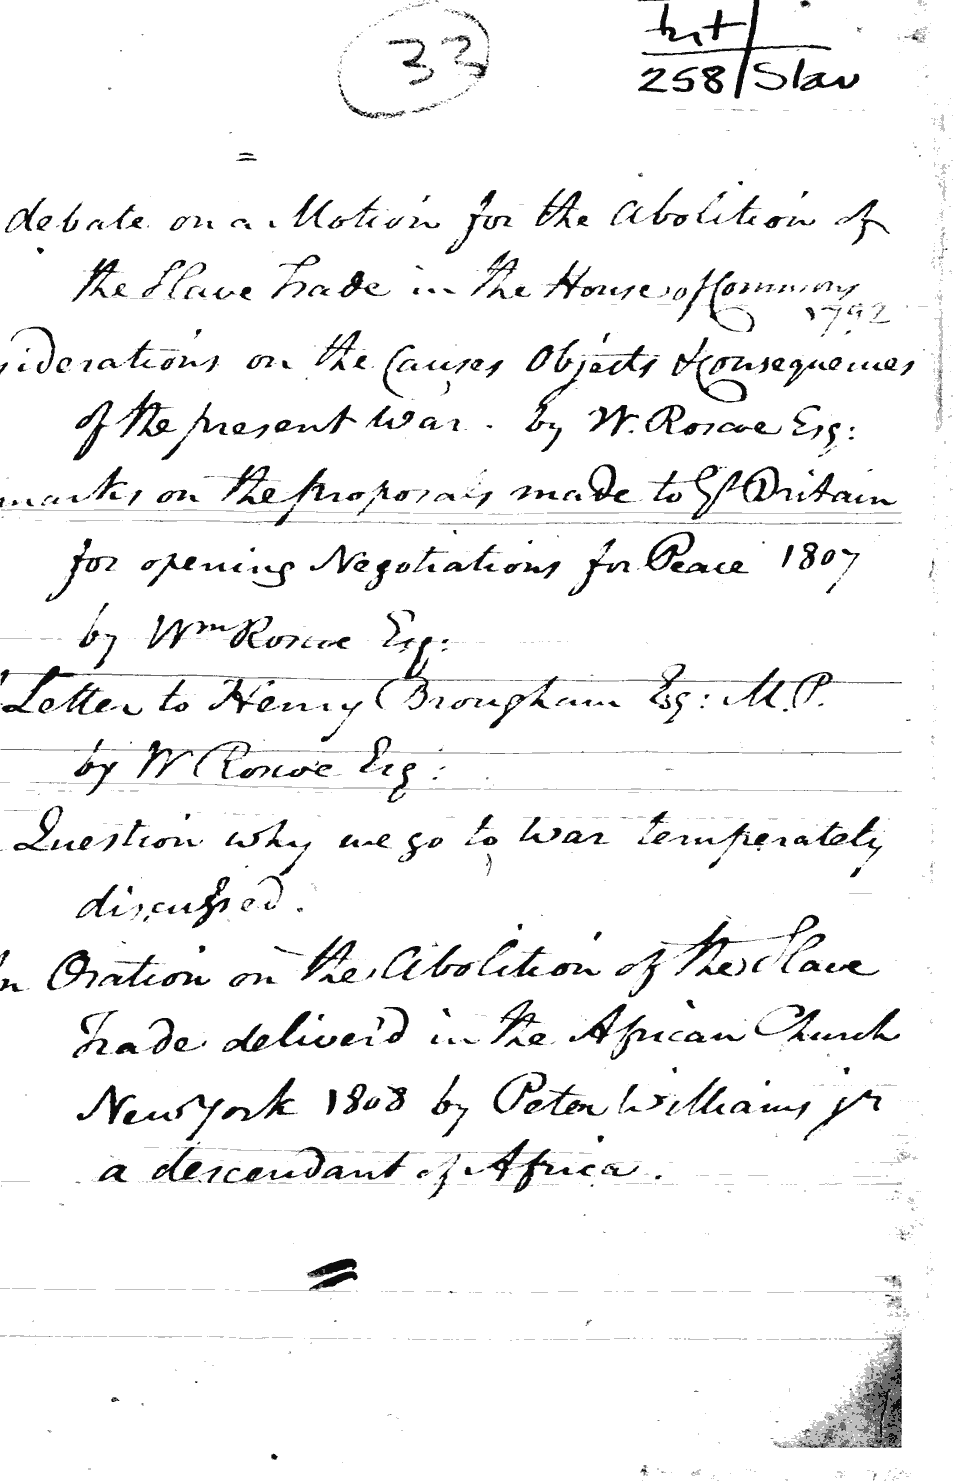 33
258 Slav
debate on a Motion for the Abolition of
the Slave Trade in the House of Commons
1792
siderations on the Causes Objects & Consequences
of the present War. by W. Roscoe Esq:
marks on the proposals made to Gt Britain
for opening Negotiations for Peace 1807
by Wm Roscoe Esq:
Letter to Henry Brougham Esq: M.P.
by W Roscoe Esq:
Question why we go to War temperately
discussed.
n Oration on the Abolition of the Slave
Trade deliver'd in the African Church
New York 1808 by Peter Williams jr
a descendant of Africa.